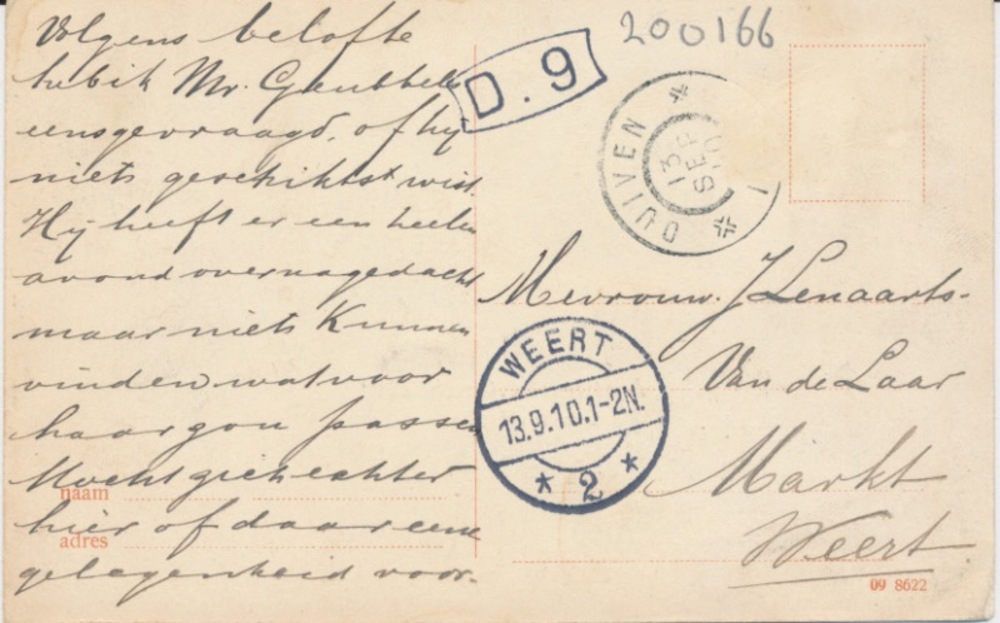 Volgens belofte
heb ik Mr.
eens gevraagd, of hij
niets geschikts wist.
Hij heeft er een heelen
avond over nagedacht
maar niets kunnen
vinden wat voor
haar zou passen
Mocht zich echter
hier of daar eene
gelegenheid voor-
naam
adres
D. 9
200166
DUIVEN
13
SEP
10
1
WEERT
13.9.10.1-2N.
2
Mevrouw. J Lenaarts-
Van de Laar
Markt
Weert
09 8622